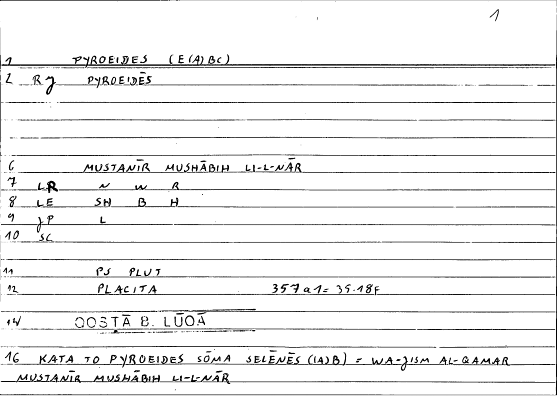 1
1 PYROEIDES (E(A)BC)
2 RJ PYROEIDĒS
6 MUSTANĪR MUSHĀBIH LI-L-NĀR
7 LR N W R
8 LE SH B H
9 JP L
10 SC
11 PS PLUT
12 PLACITA 357a1= 35.18f
14 QOSṬĀ B. LŪQĀ
16 KATA TO PYROEIDES SŌMA SELĒNĒS (IA)B) = WA-JISM AL-QAMAR
MUSTANĪR MUSHĀBIH LI-L-NĀR